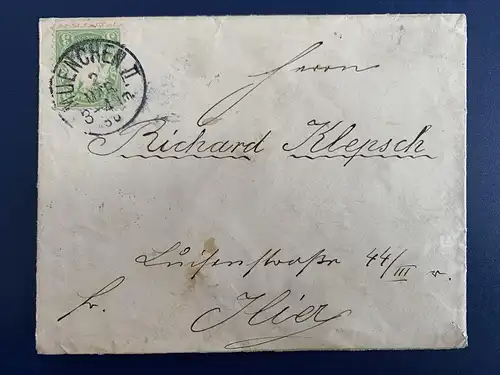 MUENCHEN II.
2
APR
3-4
Herrn
Richard Klepsch
Luisenstraße 44/III r.
fr. Hier